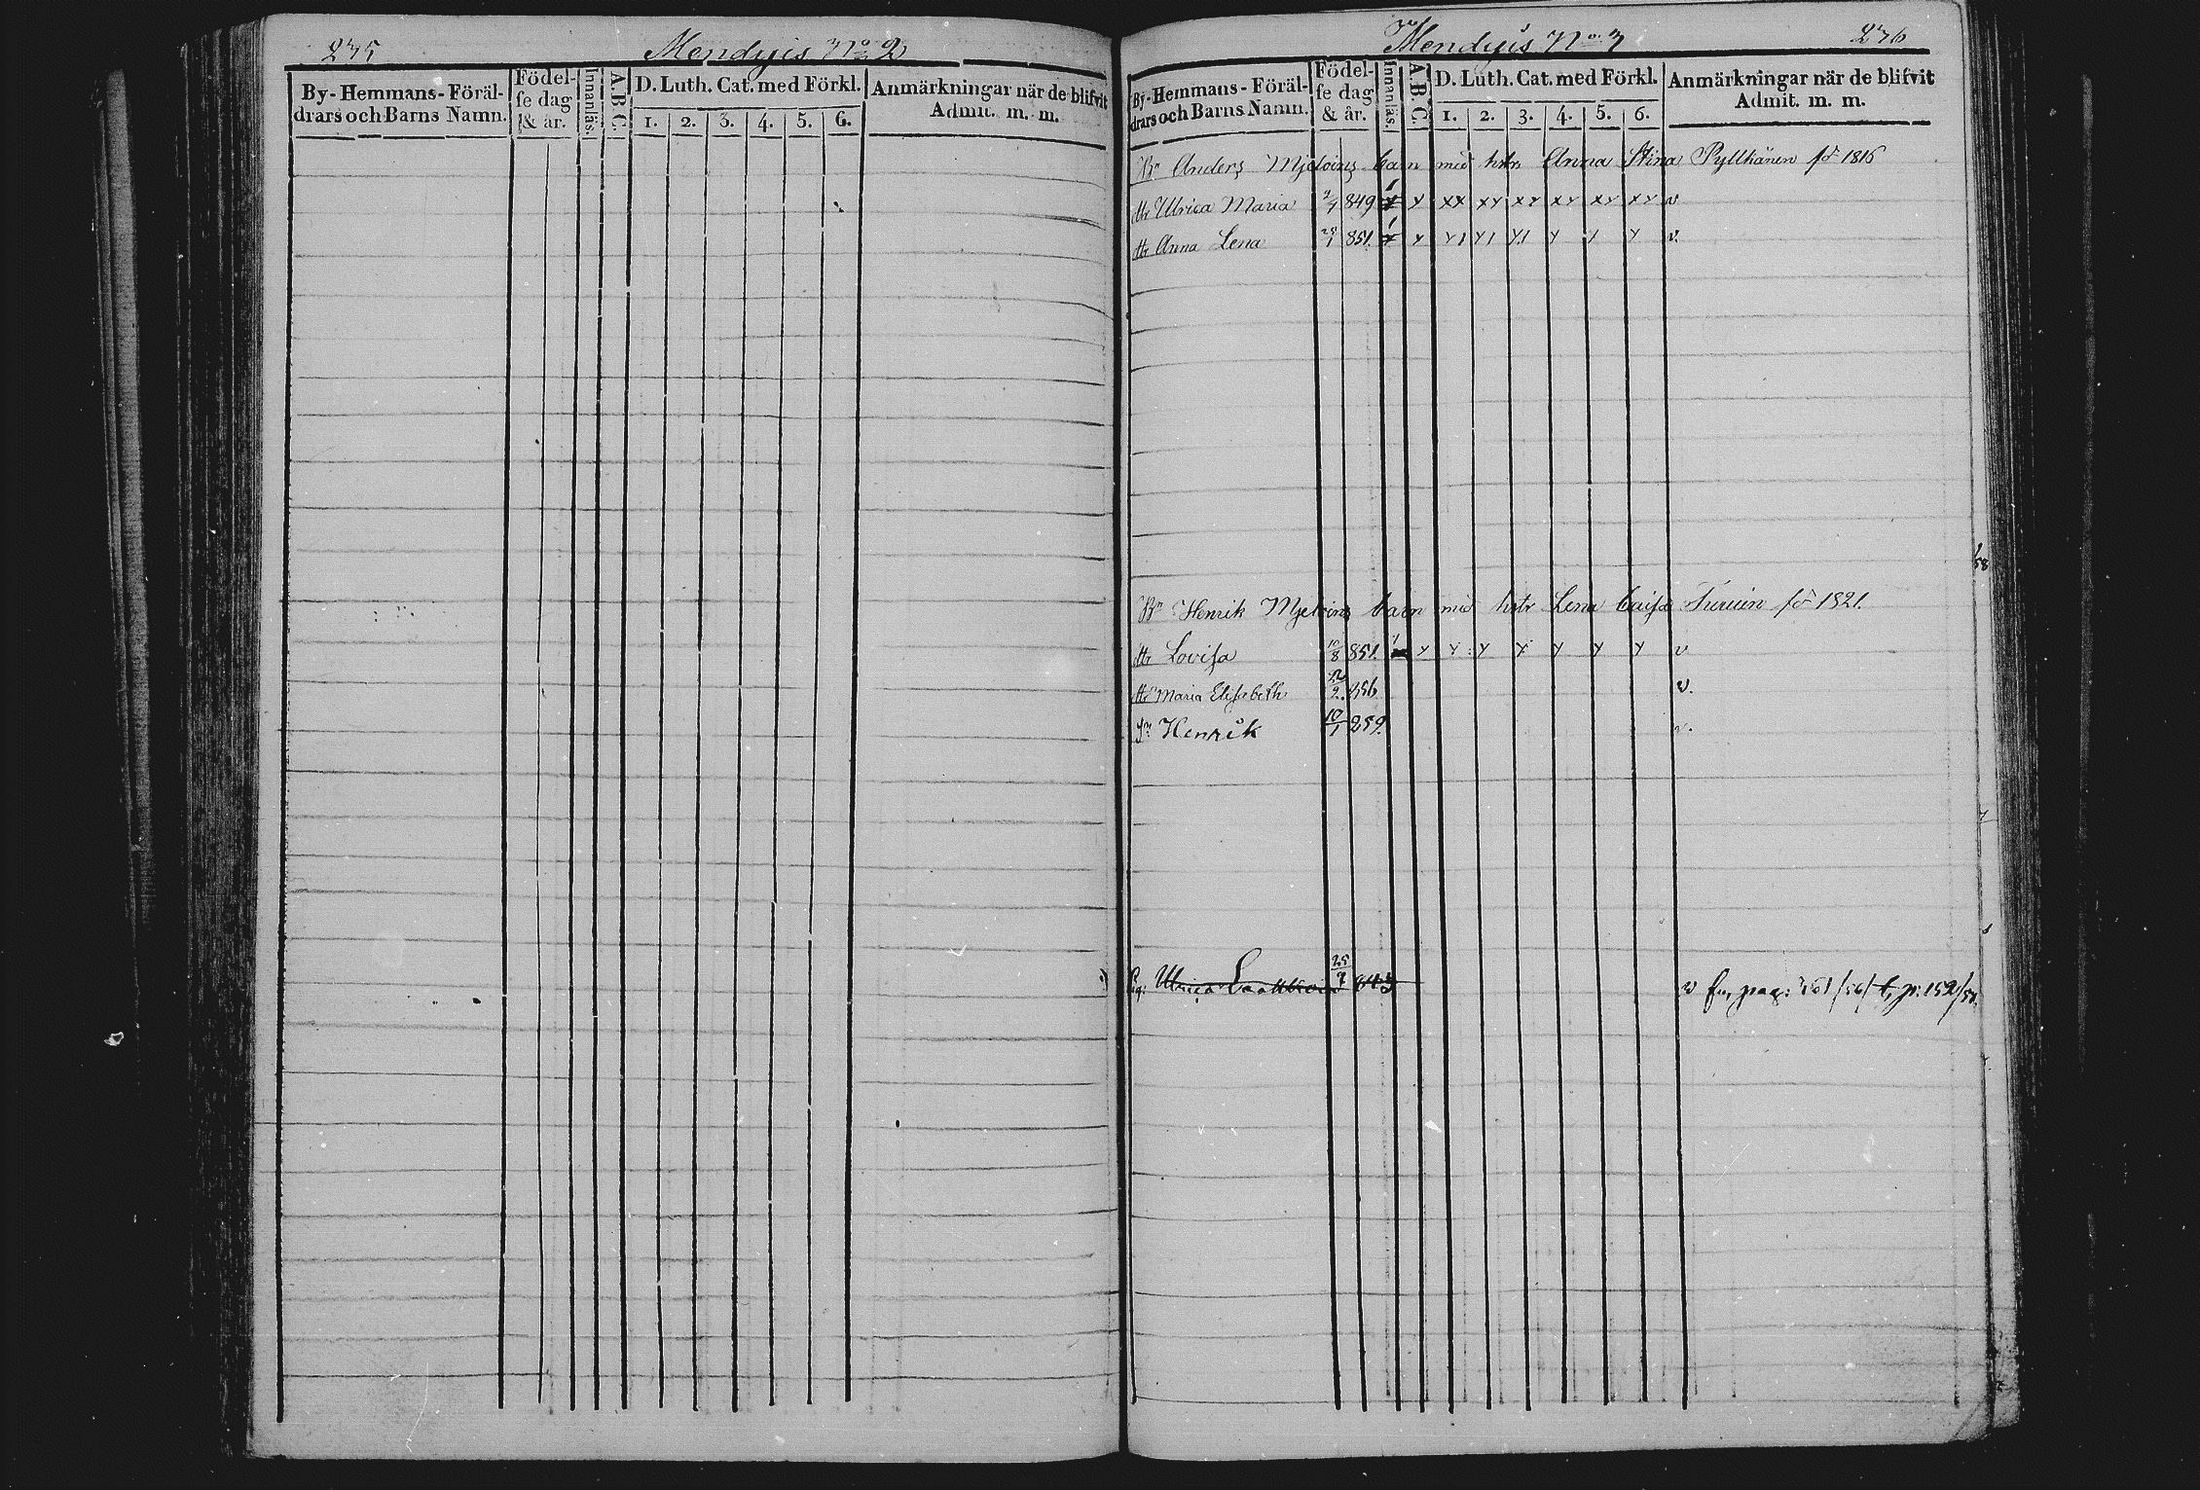 275
Mendyis No 2
By-Hemmans-Föräl-
drars och Barns Namn.
Födel-
se dag
& år.
Innanläs.
A.B.C.
D. Luth. Cat. med Förkl.
1. 2. 3. 4. 5. 6.
Anmärkningar när de blifvit
Admit. m. m.
Mendyis No 3
276
By-Hemmans-Föräl-
drars och Barns Namn.
Födel-
se dag
& år.
Innanläs.
A.B.C.
D. Luth. Cat. med Förkl.
1. 2. 3. 4. 5. 6.
Anmärkningar när de blifvit
Admit. m. m.
Bn Anders barn med hstr Anna Stina Pyllkänen fö 1816
dtr Ulrica Maria 849 x xx xx xx xx xx xx v
dtr Anna Lena 851 v.
Bn Henrik barn med hstr Lena Caisa fö 1821.
dtr Lovisa 10/8 851. v
dtr Maria Elisabeth 856 v.
Sn Henrik 10/1 859. v.
Ulrica 25/9 843 v pag: t, p: 152/58.